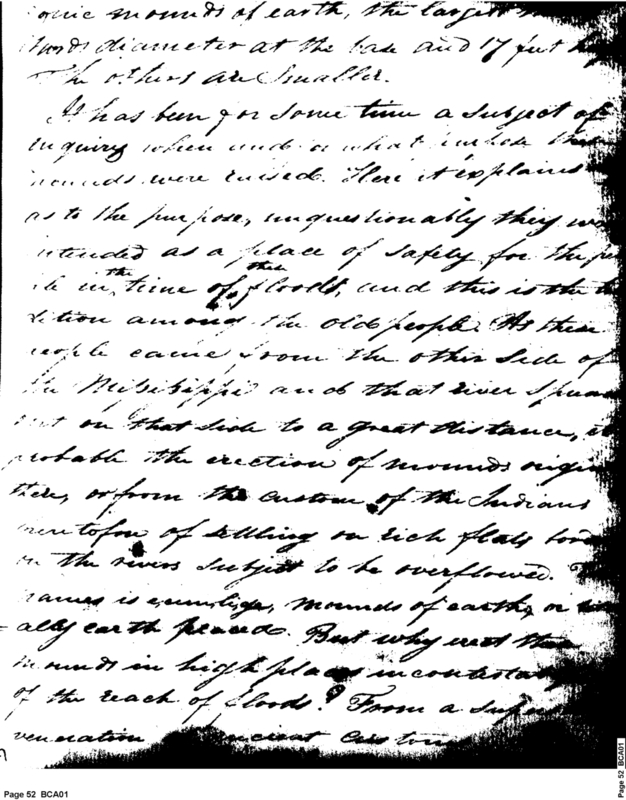 onic mounds of earth, the largest
diameter at the base and 17 feet
The others are Smaller.
It has been for some time a subject of
inquiry when and what purpose these
mounds were raised. Here it explains
as to the purpose, unquestionably they
intended as a place of safety for the
in the time of these floods, and this is the
dition among the old people. As these
people came from the other side of
the Mississippi and that river
out on that side to a great distance,
probable the erection of mounds
there, or from the custom of the Indians
heretofore of settling on rich flats
on the rivers subject to be overflowed.
names is mounds of earth, or
ally earth placed. But why erect these
mounds in high places
of the reach of floods? From a
veneration ancient
Page 52 BCA01
Page 52 BCA01